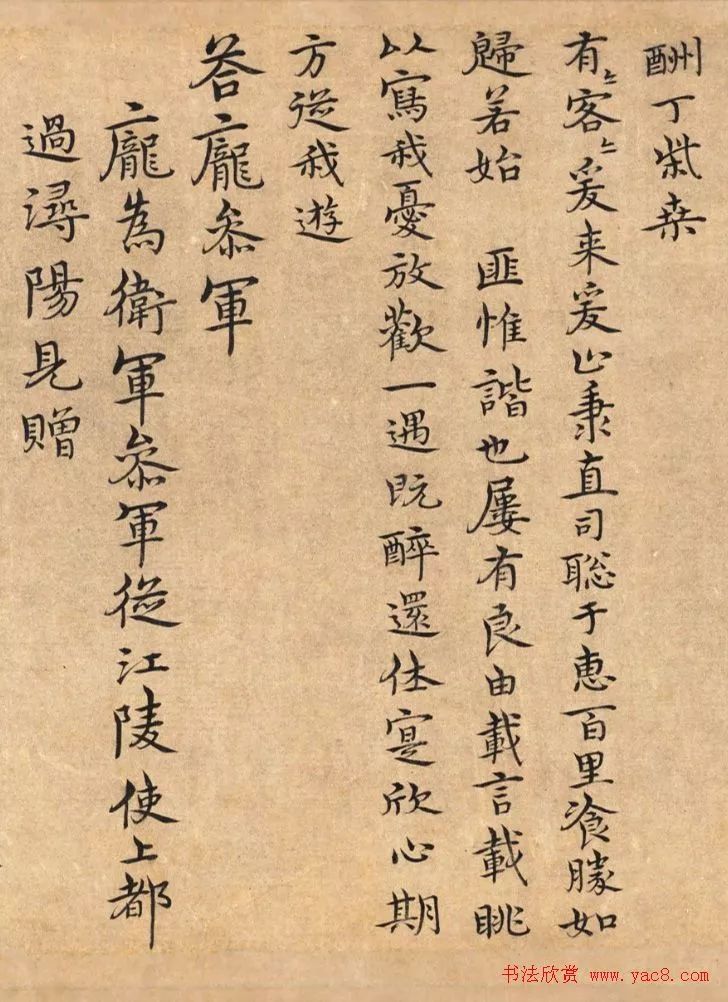 酬丁柴桑
有〻客〻爰来爰止秉直司聡于惠百里飡勝如
歸若始　匪惟諧也屢有良由載言載眺
以寫我憂放歡一遇既醉還休寔欣心期
方従我遊
答龐叅軍
龐為衛軍叅軍従江陵使上都
過潯陽見贈
书法欣赏 www.yac8.com